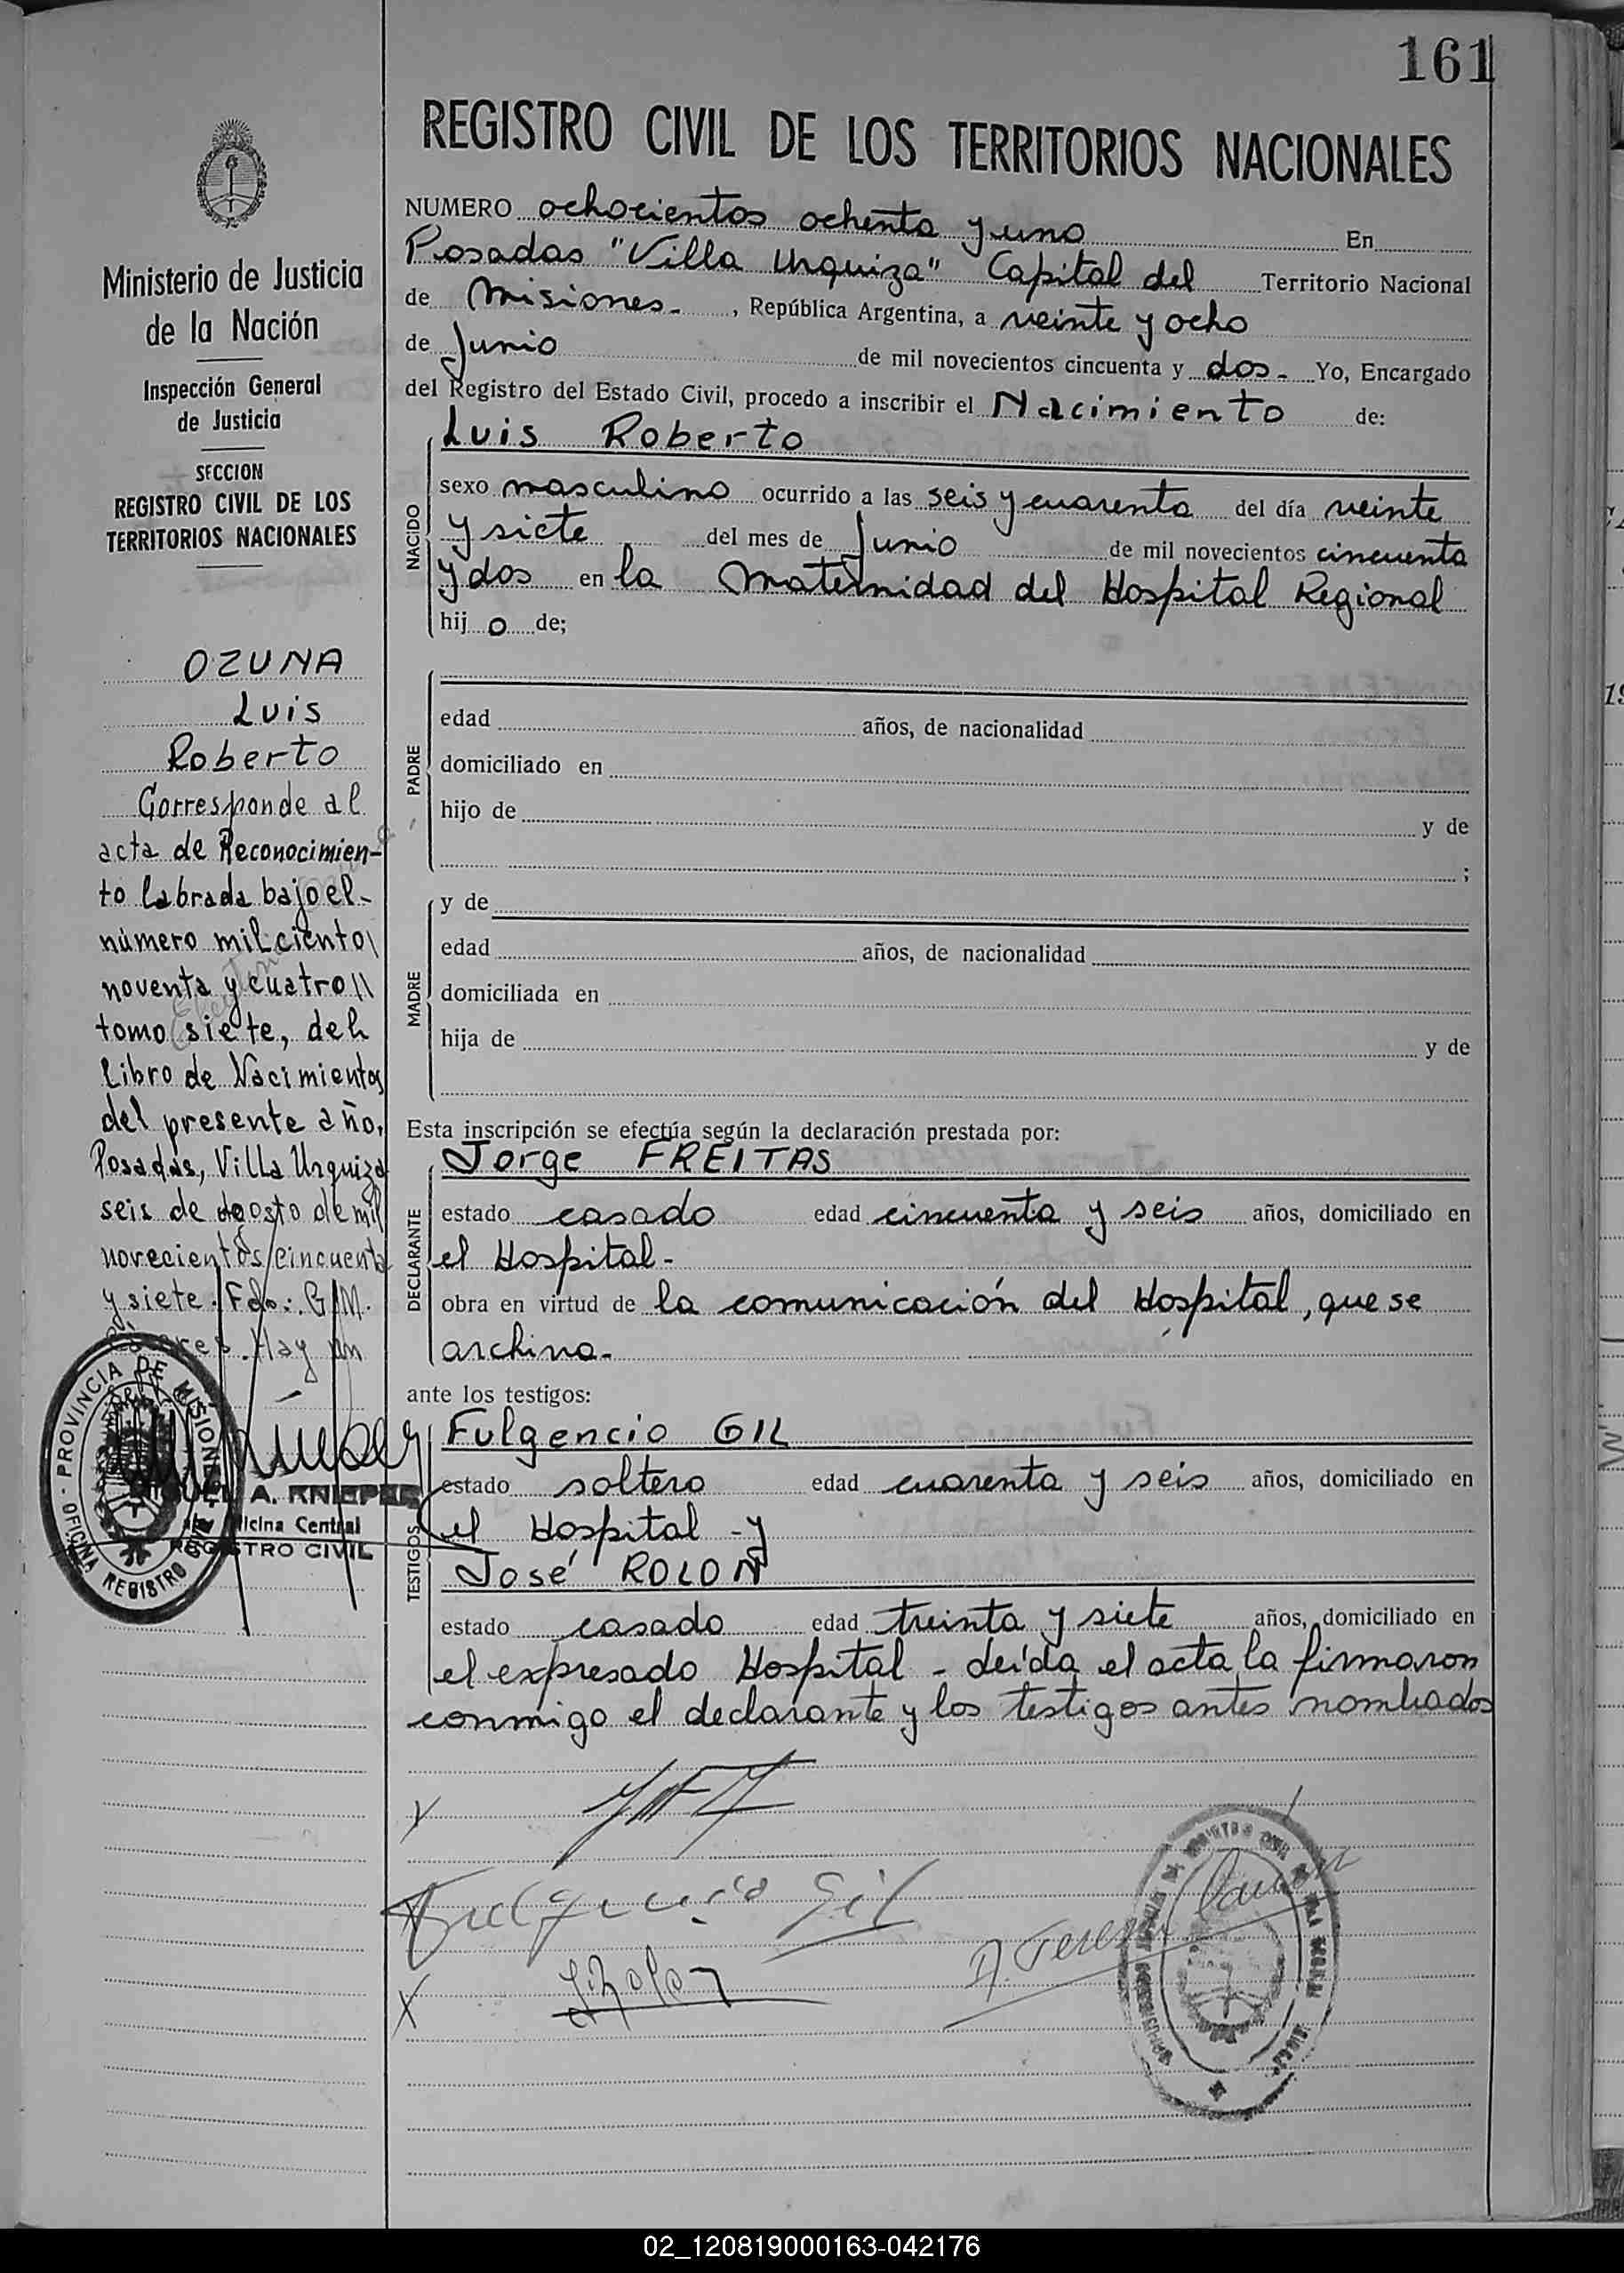 161
REGISTRO CIVIL DE LOS TERRITORIOS NACIONALES
Ministerio de Justicia
de la Nación
Inspección General
de Justicia
SECCION
REGISTRO CIVIL DE LOS
TERRITORIOS NACIONALES
OZUNA
Luis
Roberto
Corresponde al
acta de Reconocimien-
to labrada bajo el-
número mil ciento
noventa y cuatro
tomo siete, del
Libro de Nacimientos
del presente año.
Posadas, Villa Urquiza
seis de Agosto de mil
novecientos cincuenta
y siete. Fdo: G. M.
Hay un
PROVINCIA DE MISIONES
OFICINA REGISTRO
A. KNIEPER
Oficina Central
REGISTRO CIVIL
NUMERO ochocientos ochenta y uno En
Posadas "Villa Urquiza" Capital del Territorio Nacional
de Misiones-, República Argentina, a veinte y ocho
de Junio de mil novecientos cincuenta y dos- Yo, Encargado
del Registro del Estado Civil, procedo a inscribir el Nacimiento de:
NACIDO
Luis Roberto
sexo masculino ocurrido a las seis y cuarenta del día veinte
y siete del mes de Junio de mil novecientos cincuenta
y dos en la Maternidad del Hospital Regional
hijo de;
PADRE
edad años, de nacionalidad
domiciliado en
hijo de y de
;
MADRE
y de
edad años, de nacionalidad
domiciliada en
hija de y de
Esta inscripción se efectúa según la declaración prestada por:
DECLARANTE
Jorge FREITAS
estado casado edad cincuenta y seis años, domiciliado en
el Hospital-
obra en virtud de la comunicación del Hospital, que se
archiva-
ante los testigos:
TESTIGOS
Fulgencio GIL
estado soltero edad cuarenta y seis años, domiciliado en
el Hospital -y
José ROLON
estado casado edad treinta y siete años, domiciliado en
el expresado Hospital - Leída el acta la firmaron
conmigo el declarante y los testigos antes nombrados
Fulgencio Gil
J. Rolon
02_120819000163-042176